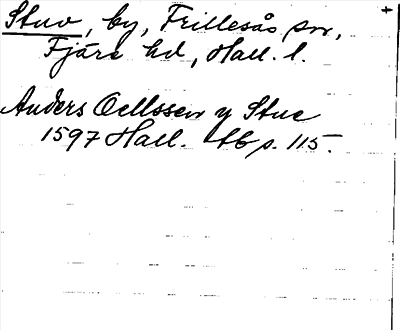 Stuv, by, Frillesås sn,
Fjäre hd, Hall. l.
Anders Oellssen y Stue
1597 Hall. tb p. 115.